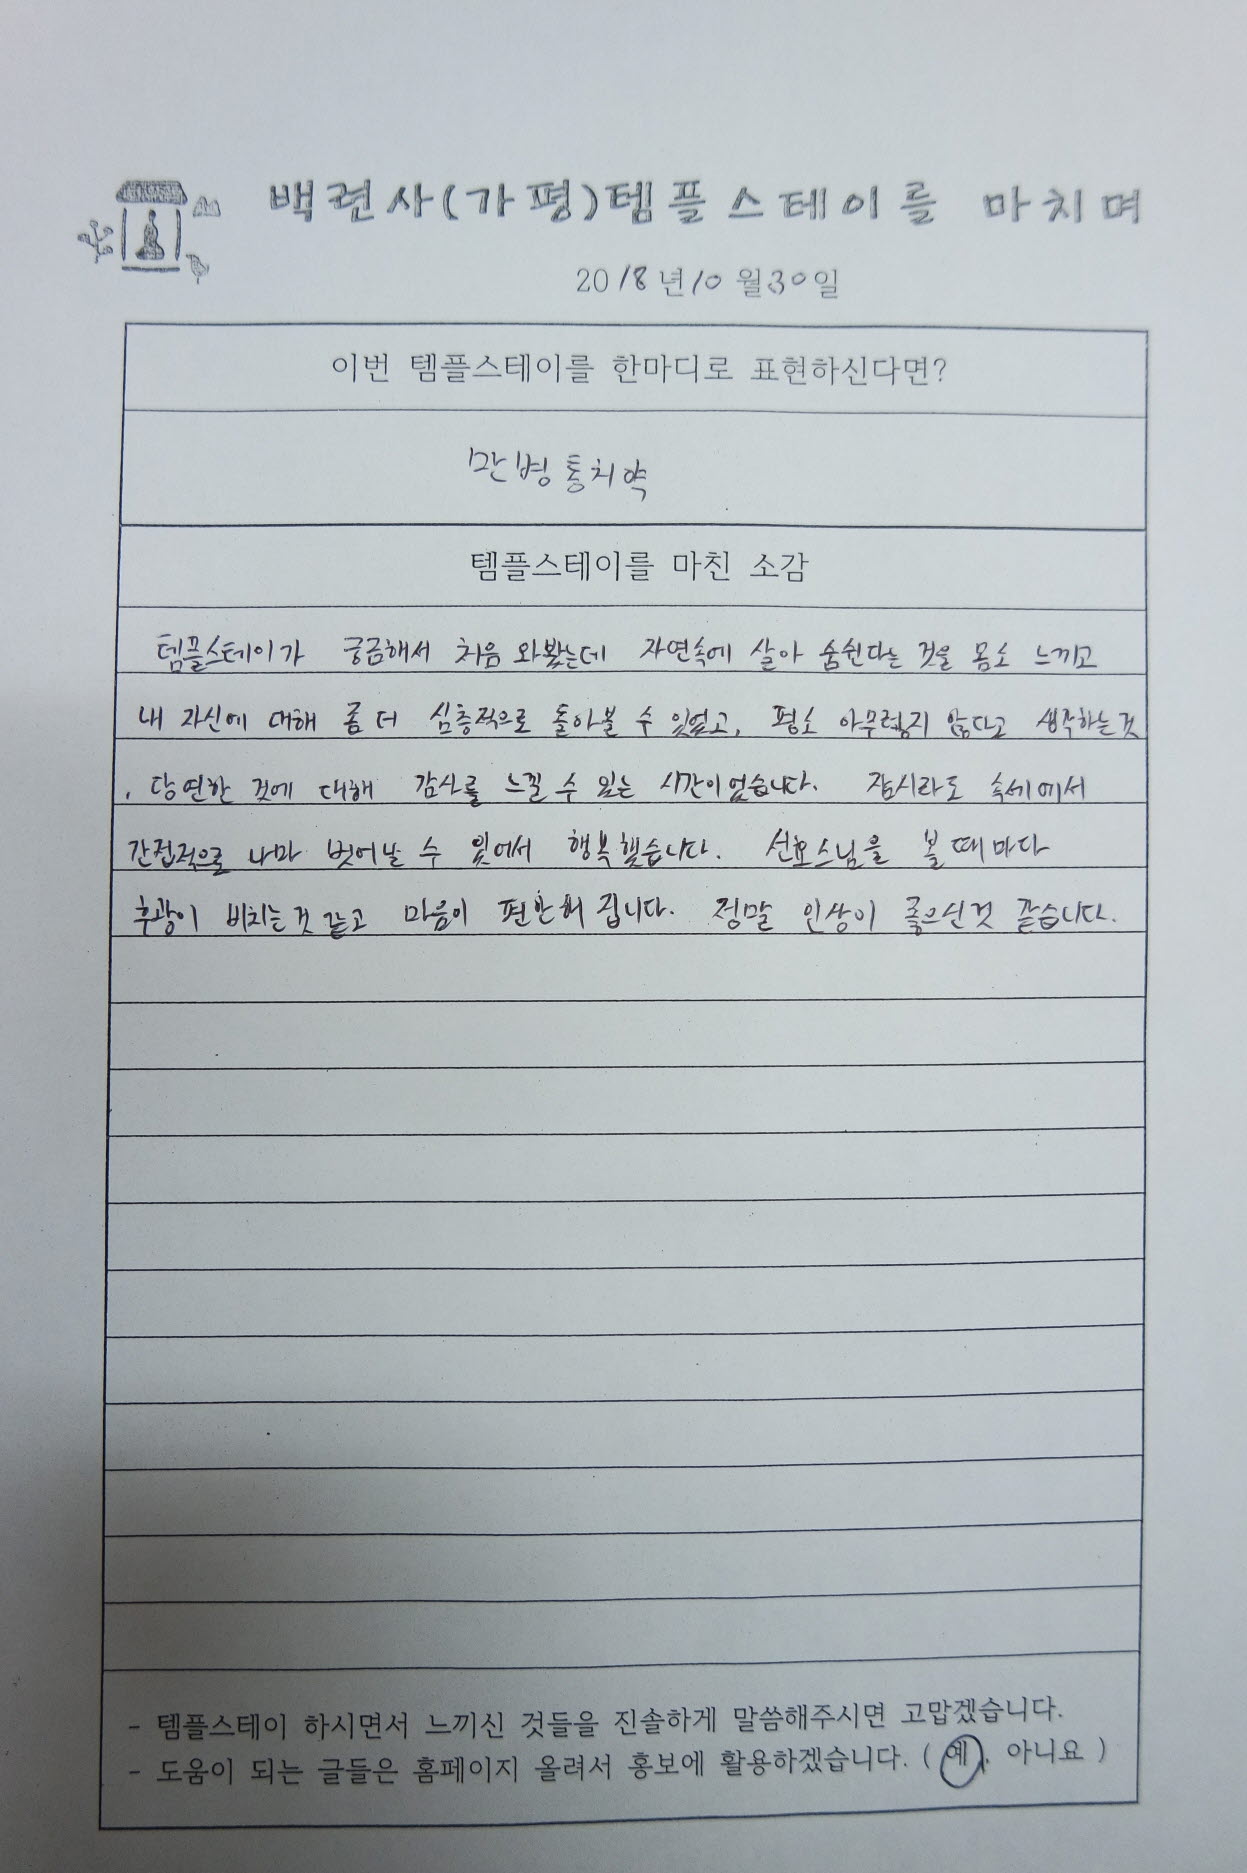 백련사(가평)템플스테이를 마치며
2018년10월30일
이번 템플스테이를 한마디로 표현하신다면?
만병통치약
템플스테이를 마친 소감
템플스테이가 궁금해서 처음 와봤는데 자연속에 살아 숨쉰다는 것을 몸소 느끼고
내 자신에 대해 좀 더 심층적으로 돌아볼 수 있었고, 평소 아무렇지 않다고 생각하는것
, 당연한 것에 대해 감사를 느낄 수 있는 시간이었습니다. 잠시라도 속세에서
간접적으로 나마 벗어날 수 있어서 행복했습니다. 선효스님을 볼 때마다
후광이 비치는것 같고 마음이 편안해 집니다. 정말 인상이 좋으신것 같습니다.
- 템플스테이 하시면서 느끼신 것들을 진솔하게 말씀해주시면 고맙겠습니다.
- 도움이 되는 글들은 홈페이지 올려서 홍보에 활용하겠습니다. ( 예, 아니요 )